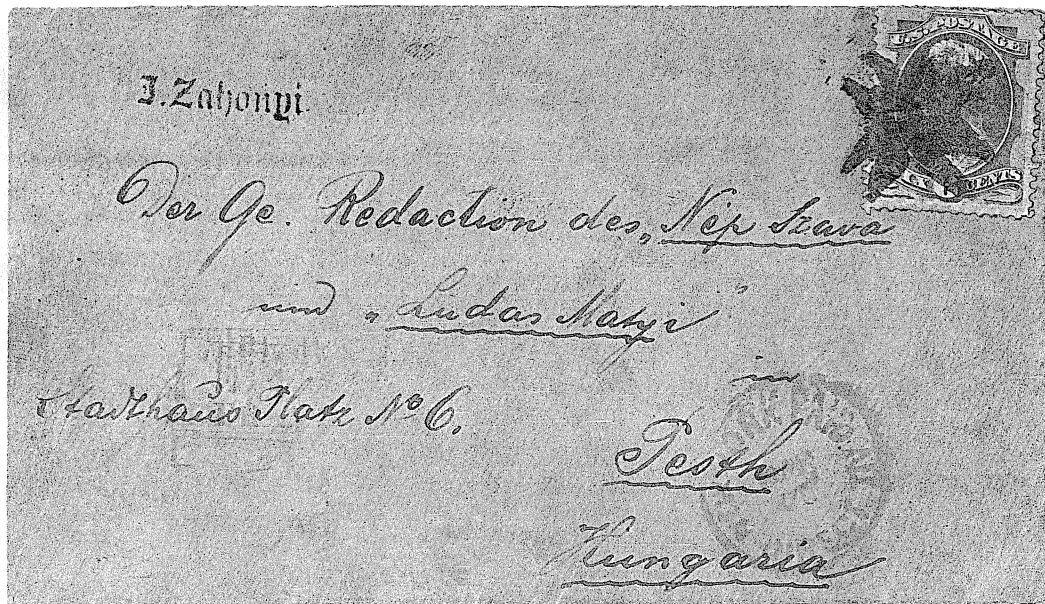 J. Zahonyi
U.S. POSTAGE
CENTS
Der Ge. Redaction des „Nép Szava
und „Ludas Matyi"
Stadthaus Platz No 6.
in
Pesth
Hungaria